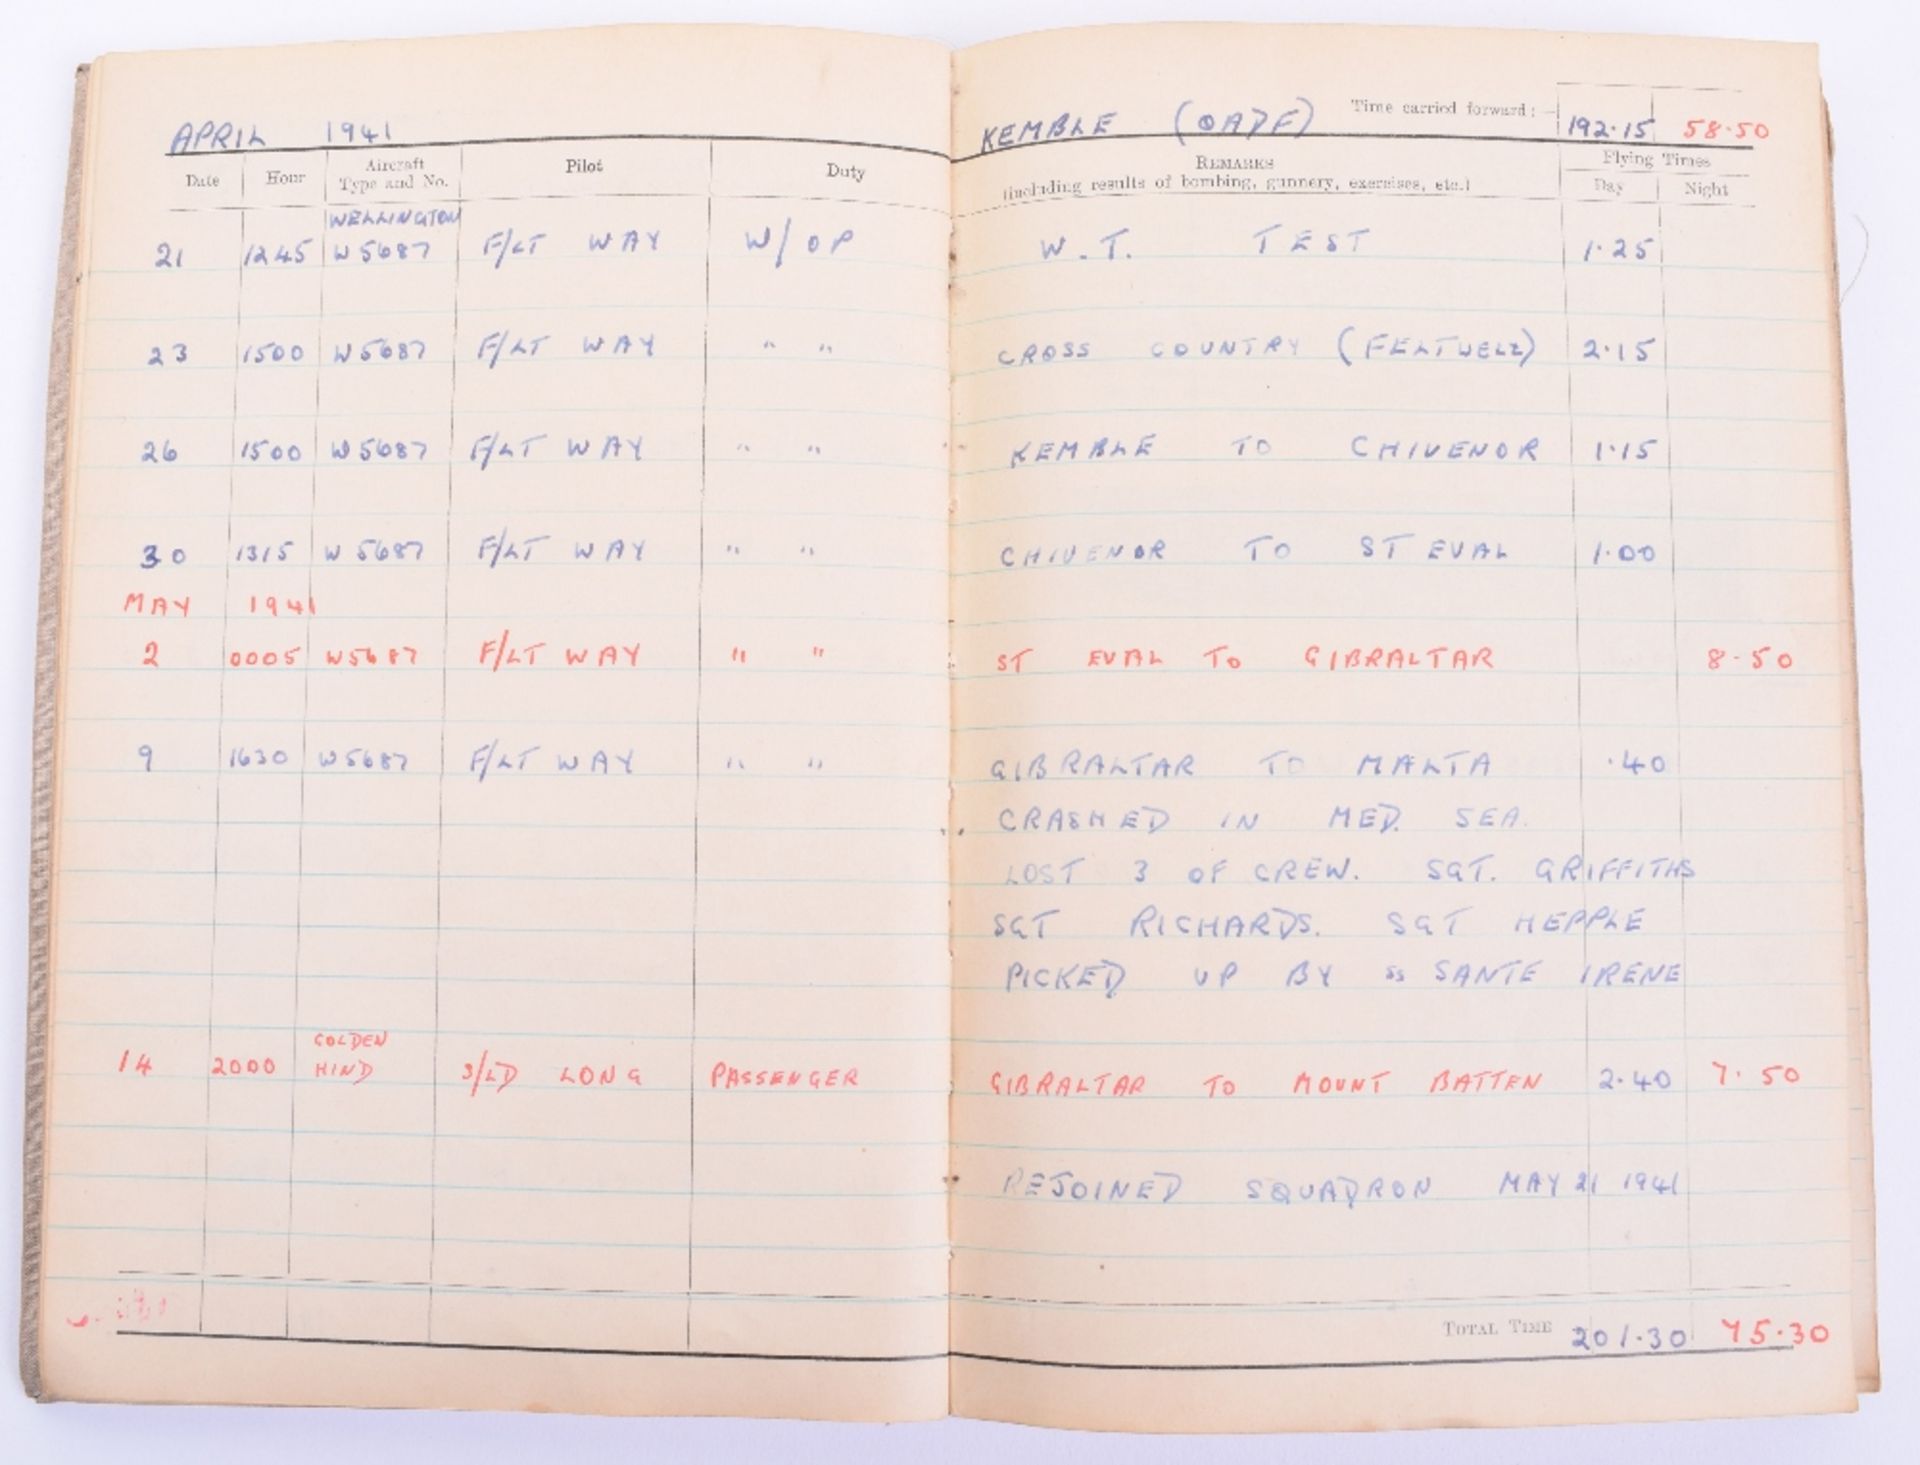 APRIL 1941 KEMBLE (OADF) Time carried forward:— 192.15 58.50
Date Hour Aircraft Type and No. Pilot Duty REMARKS (including results of bombing, gunnery, exercises, etc.) Flying Times Day Night
WELLINGTON
21 1245 W5687 F/LT WAY W/OP W.T. TEST 1.25
23 1500 W5687 F/LT WAY " " CROSS COUNTRY (FELTWELL) 2.15
26 1500 W5687 F/LT WAY " " KEMBLE TO CHIVENOR 1.15
30 1315 W5687 F/LT WAY " " CHIVENOR TO ST EVAL 1.00
MAY 1941
2 0005 W5687 F/LT WAY " " ST EVAL TO GIBRALTAR 8.50
9 1630 W5687 F/LT WAY " " GIBRALTAR TO MALTA .40
CRASHED IN MED. SEA.
LOST 3 OF CREW. SGT. GRIFFITHS
SGT RICHARDS. SGT HEPPLE
PICKED UP BY SS SANTE IRENE
GOLDEN
14 2000 HIND S/LD LONG PASSENGER GIBRALTAR TO MOUNT BATTEN 2.40 7.50
REJOINED SQUADRON MAY 21 1941
TOTAL TIME 201.30 75.30